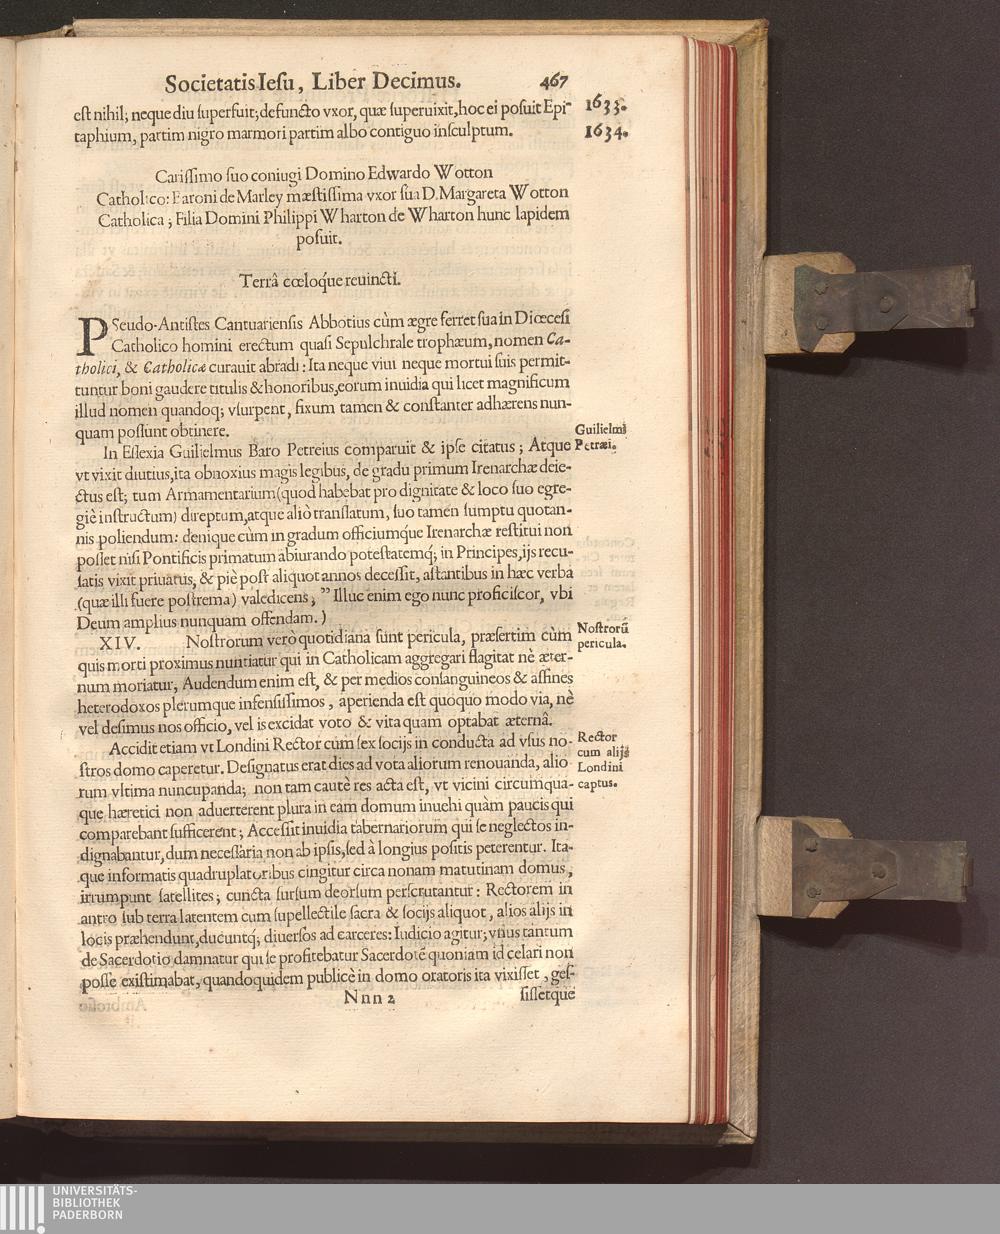 Societatis Iesu, Liber Decimus. 467
est nihil; neque diu superfuit; defuncto vxor, quæ superuixit, hoc ei posuit Epi-
taphium, partim nigro marmori partim albo contiguo insculptum.
1633.
1634.
Carissimo suo coniugi Domino Edwardo Wotton
Catholico: Baroni de Marley mæstissima vxor sua D. Margareta Wotton
Catholica; Filia Domini Philippi Wharton de Wharton hunc lapidem
posuit.
Terrâ cœloq́ue reuincti.
PSeudo-Antistes Cantuariensis Abbotius cùm ægre ferret sua in Diœcesi
Catholico homini erectum quasi Sepulchrale trophæum, nomen Ca-
tholici, & Catholicæ curauit abradi: Ita neque viui neque mortui suis permit-
tuntur boni gaudere titulis & honoribus, eorum inuidia qui licet magnificum
illud nomen quandoq; vsurpent, fixum tamen & constanter adhærens nun-
quam possunt obtinere.
In Essexia Guilielmus Baro Petreius comparuit & ipse citatus; Atque
Guilielmi
Petræi.
vt vixit diutius, ita obnoxius magis legibus, de gradu primum Irenarchæ deie-
ctus est; tum Armamentarium (quod habebat pro dignitate & loco suo egre-
giè instructum) direptum, atque aliò translatum, suo tamen sumptu quotan-
nis poliendum: denique cùm in gradum officiumq́ue Irenarchæ restitui non
posset nisi Pontificis primatum abiurando potestatemq́; in Principes, ijs recu-
satis vixit priuatus, & piè post aliquot annos decessit, astantibus in hæc verba
(quæ illi fuere postrema) valedicens; ” Illuc enim ego nunc proficiscor, vbi
Deum amplius nunquam offendam.)
XIV. Nostrorum verò quotidiana sunt pericula, præsertim cùm
Nostrorū
pericula.
quis morti proximus nuntiatur qui in Catholicam aggregari flagitat nè æter-
num moriatur, Audendum enim est, & per medios consanguineos & affines
heterodoxos plerumque infensissimos, aperienda est quoquo modo via, nè
vel desimus nos officio, vel is excidat voto & vita quam optabat æternâ.
Accidit etiam vt Londini Rector cùm sex socijs in conducta ad vsus no-
Rector
cum alijs
Londini
captus.
stros domo caperetur. Designatus erat dies ad vota aliorum renouanda, alio-
rum vltima nuncupanda; non tam cautè res acta est, vt vicini circumqua-
que hæretici non aduerterent plura in eam domum inuehi quàm paucis qui
comparebant sufficerent; Accessit inuidia tabernariorum qui se neglectos in-
dignabantur, dum necessaria non ab ipsis, sed à longius positis peterentur. Ita-
que informatis quadruplatoribus cingitur circa nonam matutinam domus,
irrumpunt satellites; cuncta sursum deorsum perscrutantur: Rectorem in
antro sub terra latentem cum supellectile sacra & socijs aliquot, alios alijs in
locis præhendunt, ducuntq́; diuersos ad carceres: Iudicio agitur; vnus tantum
de Sacerdotio damnatur qui se profitebatur Sacerdotē quoniam id celari non
posse existimabat, quandoquidem publicè in domo oratoris ita vixisset, ges-
Nnn 2 sissetque
UNIVERSITÄTS-
BIBLIOTHEK
PADERBORN